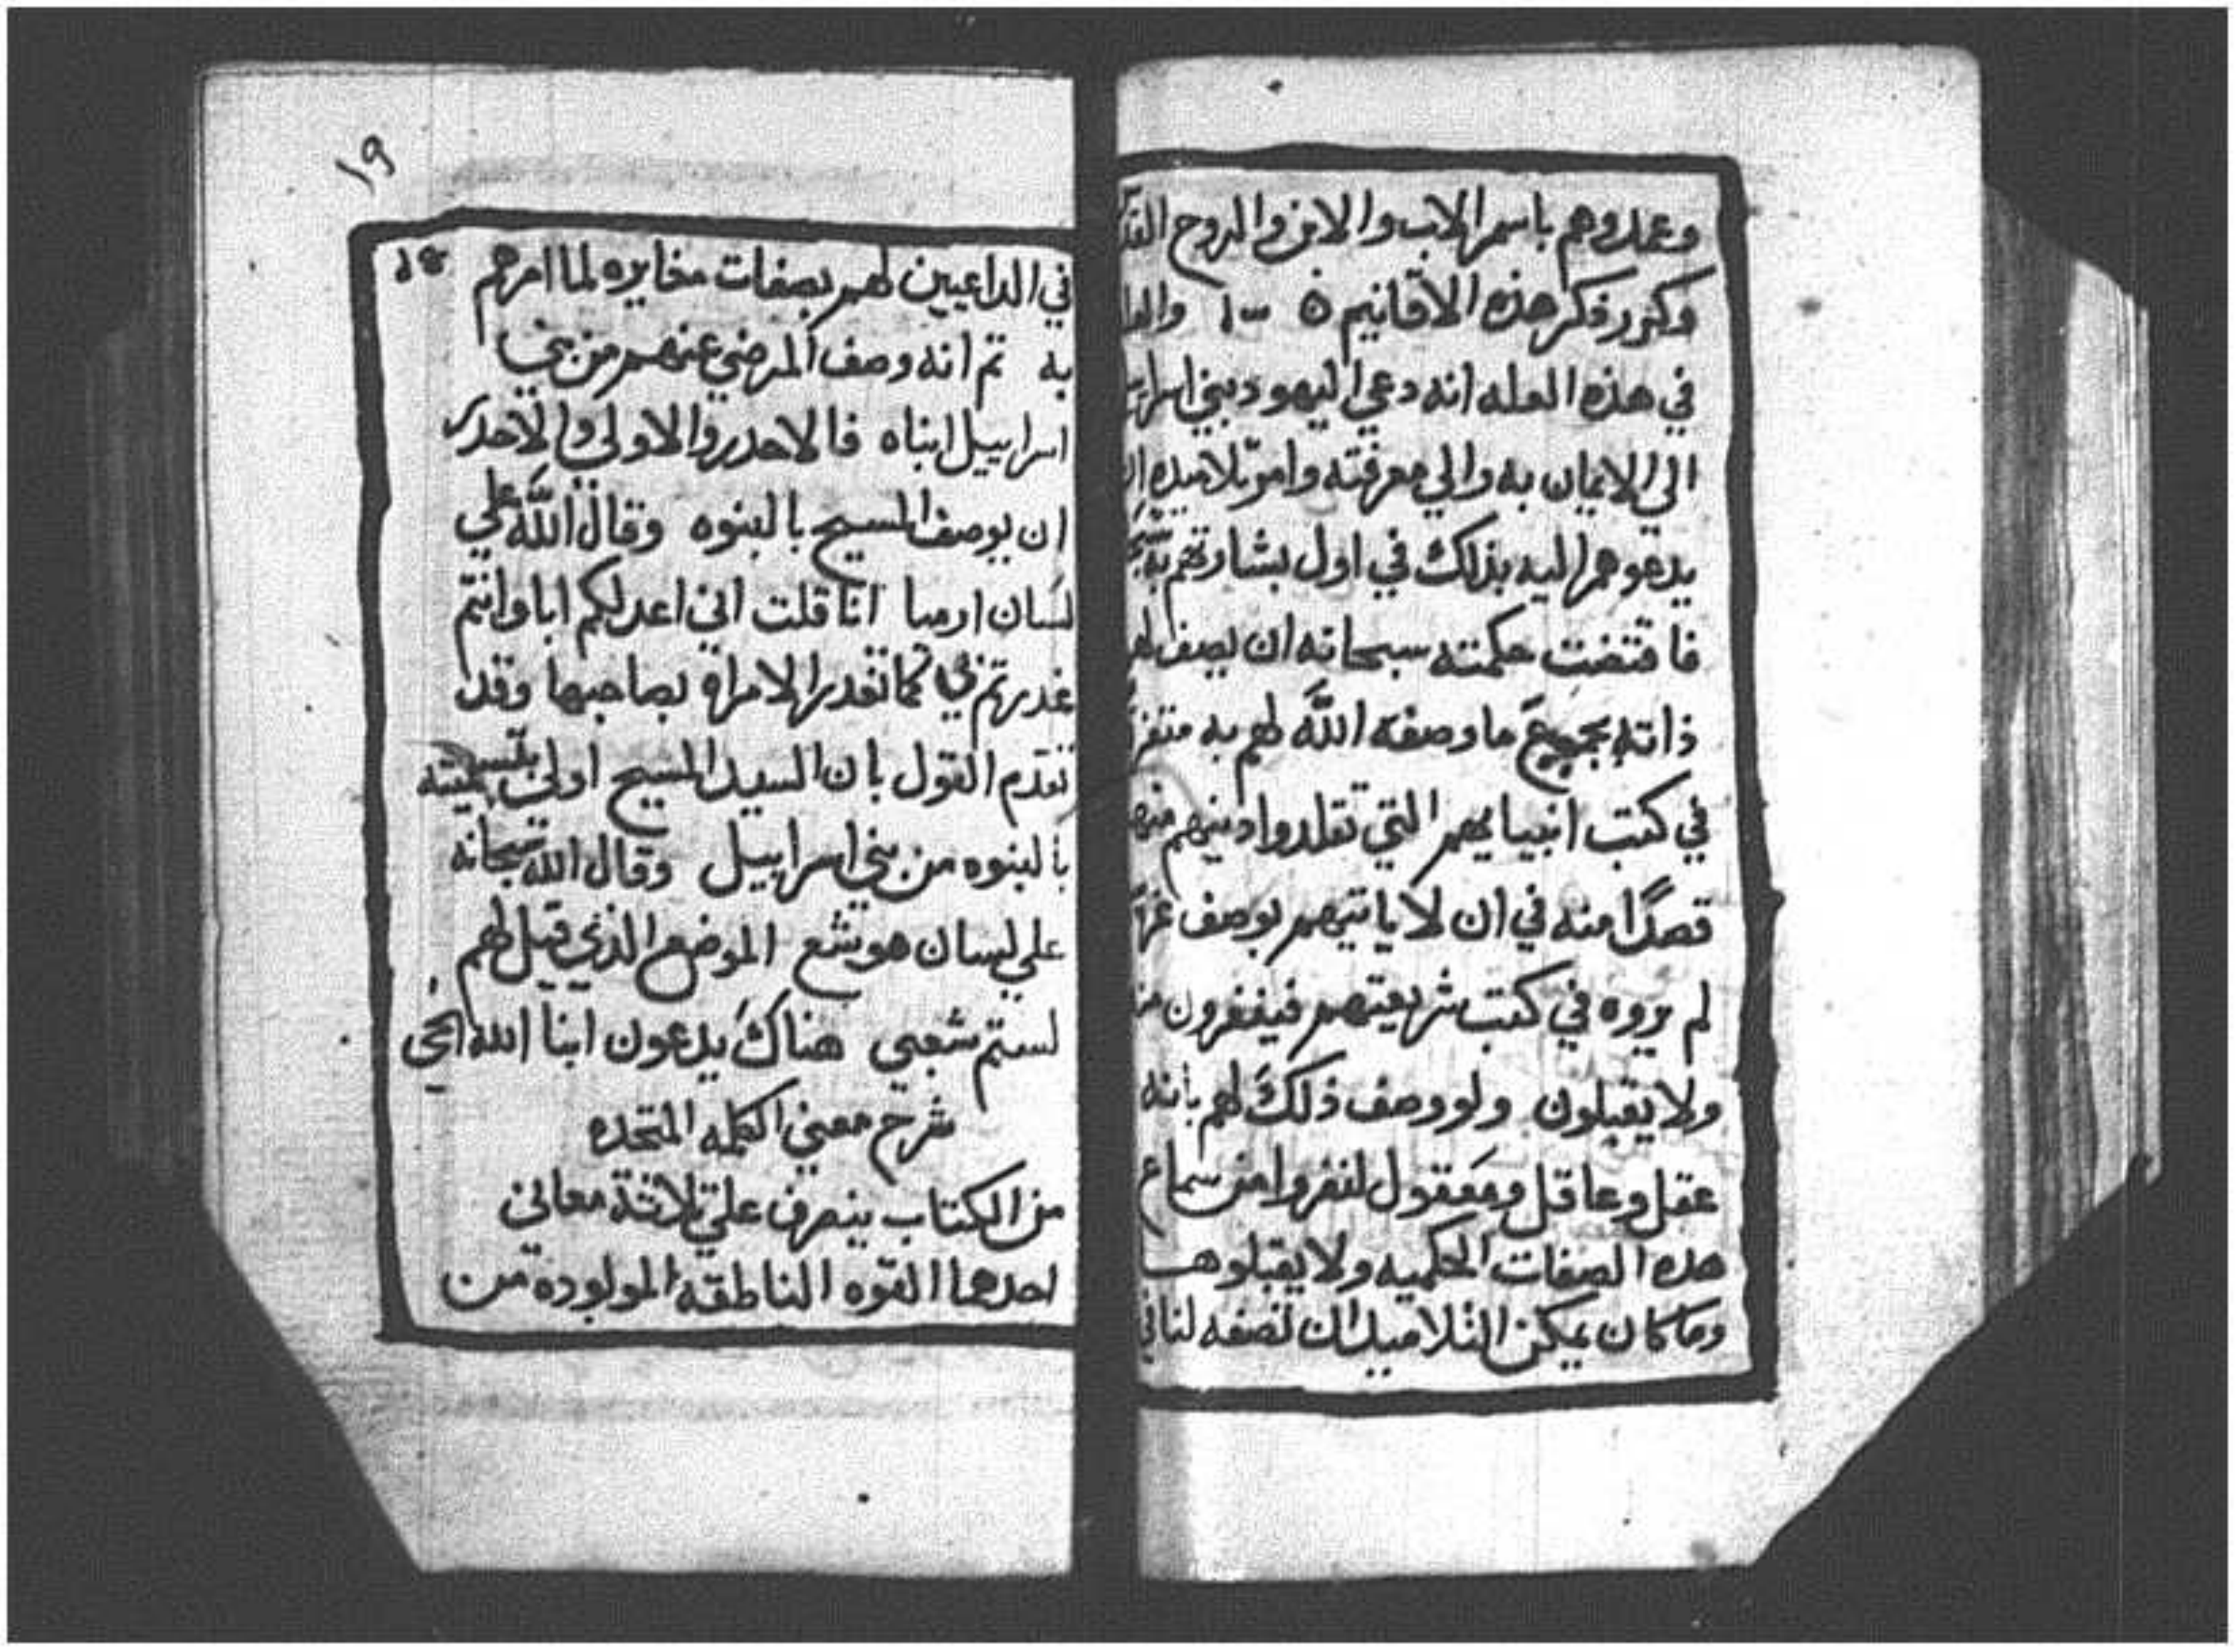 وعمدوهم باسم الاب والابن والروح القدس
وكرر ذكر هذه الاقانيم
في هذه العله انه دعي اليهود بني اسراييل
الي الايمان به والي معرفته وامر تلاميذه ان
يدعوهم اليه بذلك في اول بشارتهم به
فاقتضت حكمته سبحانه ان يصف لهم
ذاته بجميع ما وصفه الله لهم به
في كتب انبيايهم التي تقلدوا دينهم منها
قصدًا منه في ان لا ياتيهم بوصف
لم يروه في كتب شريعتهم فينفرون منه
ولا يقبلون ولو وصف ذلك لهم بانه
عقل وعاقل ومعقول لنفروا من سماع
هده الصفات الحكميه ولا يقبلوها
وما كان يمكن التلاميد ان تصفه لنا في
١٩
في الداعيين لهم بصفات مغايره لما امرهم
به تم انه وصف المرضي عنهم من بني
اسراييل ابناه فالاحدر والاولي والاحدر
ان يوصف المسيح بالبنوه وقال الله علي
لسان ارميا انا قلت اني اعد لكم ابا وانتم
غدرتم بي كما تغدر الامراه بصاحبها وقد
تقدم القول بان السيد المسيح اولي بتسميته
بالبنوه من بني اسراييل وقال الله سبحانه
علي لسان هوشع الموضع الذي قيل لهم
لستم شعبي هناك يدعون ابنا الله الحي
شرح معني الكلمه المتحده
من الكتاب ينصرف علي تلاتة معاني
احدهما القوه الناطقه المولوده من